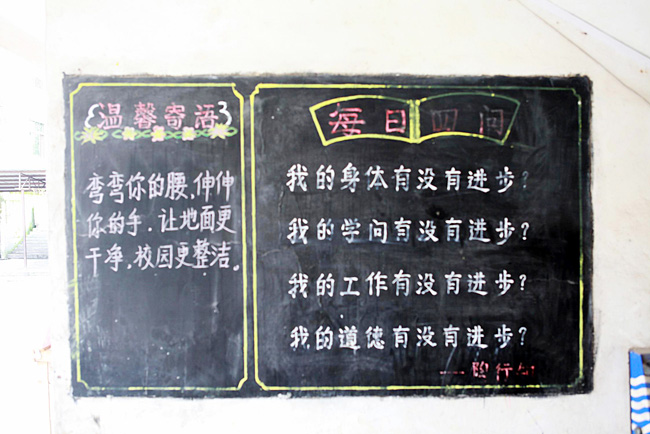 温馨寄语
弯弯你的腰,伸伸
你的手.让地面更
干净,校园更整洁。
每日四问
我的身体有没有进步?
我的学问有没有进步?
我的工作有没有进步?
我的道德有没有进步?
——陶行知